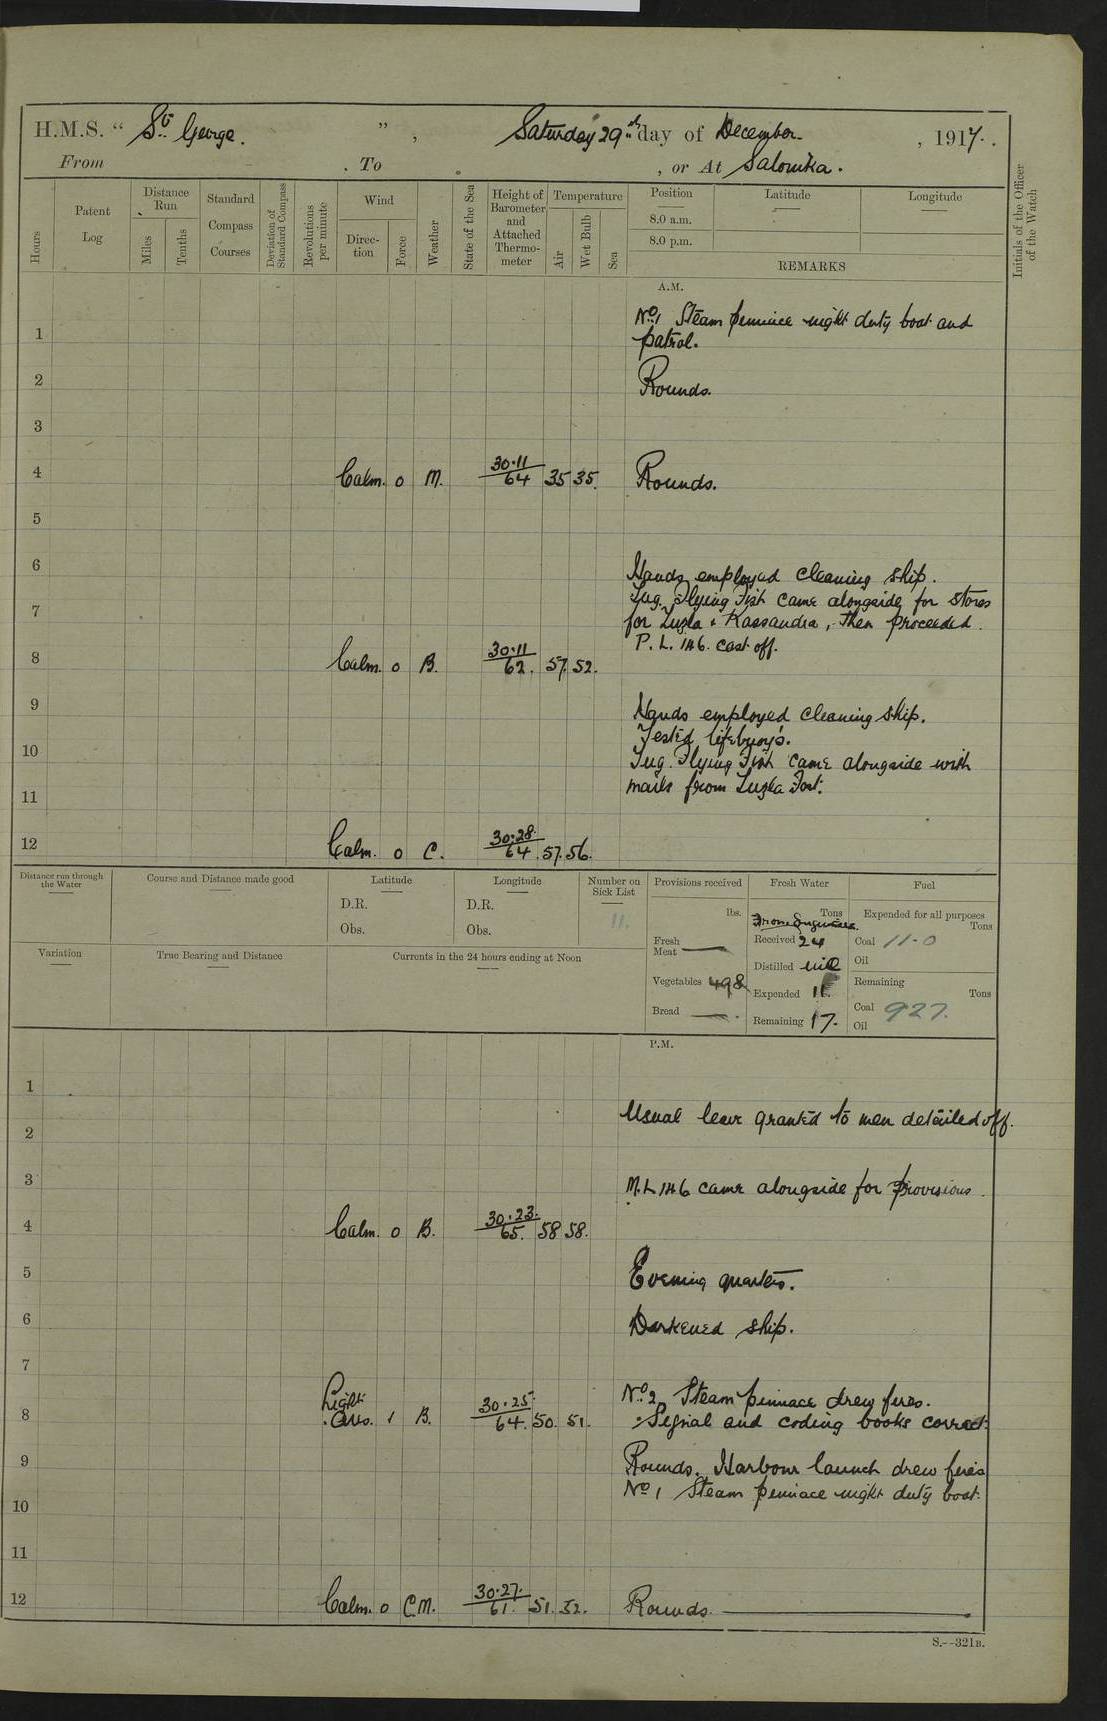 H.M.S. “ St. George. ” , Saturday 29th day of December , 1917.
From . To . , or At Salonika.
Hours
Patent Log
Distance Run
Miles
Tenths
Standard Compass Courses
Deviation of Standard Compass
Revolutions per minute
Wind
Direc-tion
Force
Weather
State of the Sea
Height of Barometer and Attached Thermo-meter
Temperature
Air
Wet Bulb
Sea
Position
Latitude
Longitude
8.0 a.m.
8.0 p.m.
REMARKS
Initials of the Officer of the Watch
A.M.
1 No. 1 Steam pinnace night duty boat and
patrol.
2 Rounds.
3
4 Calm. 0 M. 30.11/64 35 35. Rounds.
5
6 Hands employed cleaning ship.
Tug. Flying Fish came alongside for stores
7 for Luzla & Kassandra, then proceeded.
P. L. 146. cast off.
8 Calm. 0 B. 30.11/62. 57. 52.
9 Hands employed cleaning ship.
Tested lifebuoy's.
10 Tug. Flying Fish came alongside with
mails from Luzla Fort.
11
12 Calm. 0 C. 30.28/64. 57. 56.
Distance run through the Water
Course and Distance made good
Latitude
D.R.
Obs.
Longitude
D.R.
Obs.
Number on Sick List
11.
Provisions received
lbs.
Fresh Meat —
Vegetables 498
Bread —
Fresh Water
Tons
From Engineer.
Received 24
Distilled nil
Expended 11
Remaining 17.
Fuel
Expended for all purposes
Tons
Coal 11-0
Oil
Remaining
Tons
Coal 927.
Oil
Variation
True Bearing and Distance
Currents in the 24 hours ending at Noon
P.M.
1
Usual leave granted to men detailed off.
2
3 M.L 146 came alongside for provisions.
4 Calm. 0 B. 30.23./65. 58 58.
5 Evening quarters.
6 Darkened ship.
7
No. 2 Steam pinnace drew fires.
8 Light Airs. 1 B. 30.25./64. 50. 51. Signal and coding books correct.
9 Rounds. Harbour launch drew fires
No 1 Steam pinnace night duty boat.
10
11
12 Calm. 0 C.M. 30.27./61. 51. 52. Rounds.
S.--321B.